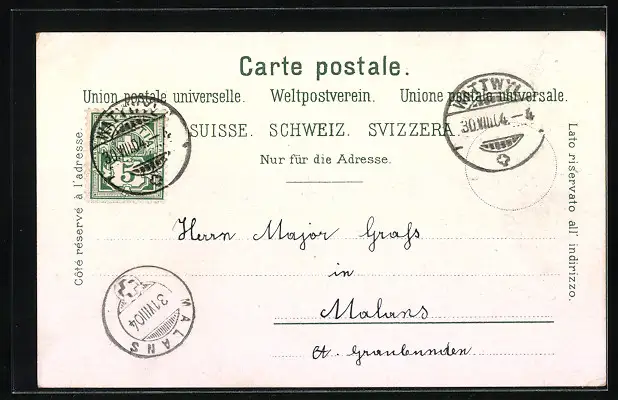 Carte postale.
Union postale universelle. Weltpostverein. Unione postale universale.
SUISSE. SCHWEIZ. SVIZZERA.
Nur für die Adresse.
Côté réservé à l'adresse.
Lato riservato all' indirizzo.
WATTWYL
30.VIII.04.-4
WATTWYL
15
Herrn Major Grass
in
Malans
Ct. Graubünden
31.VIII.04
MALANS